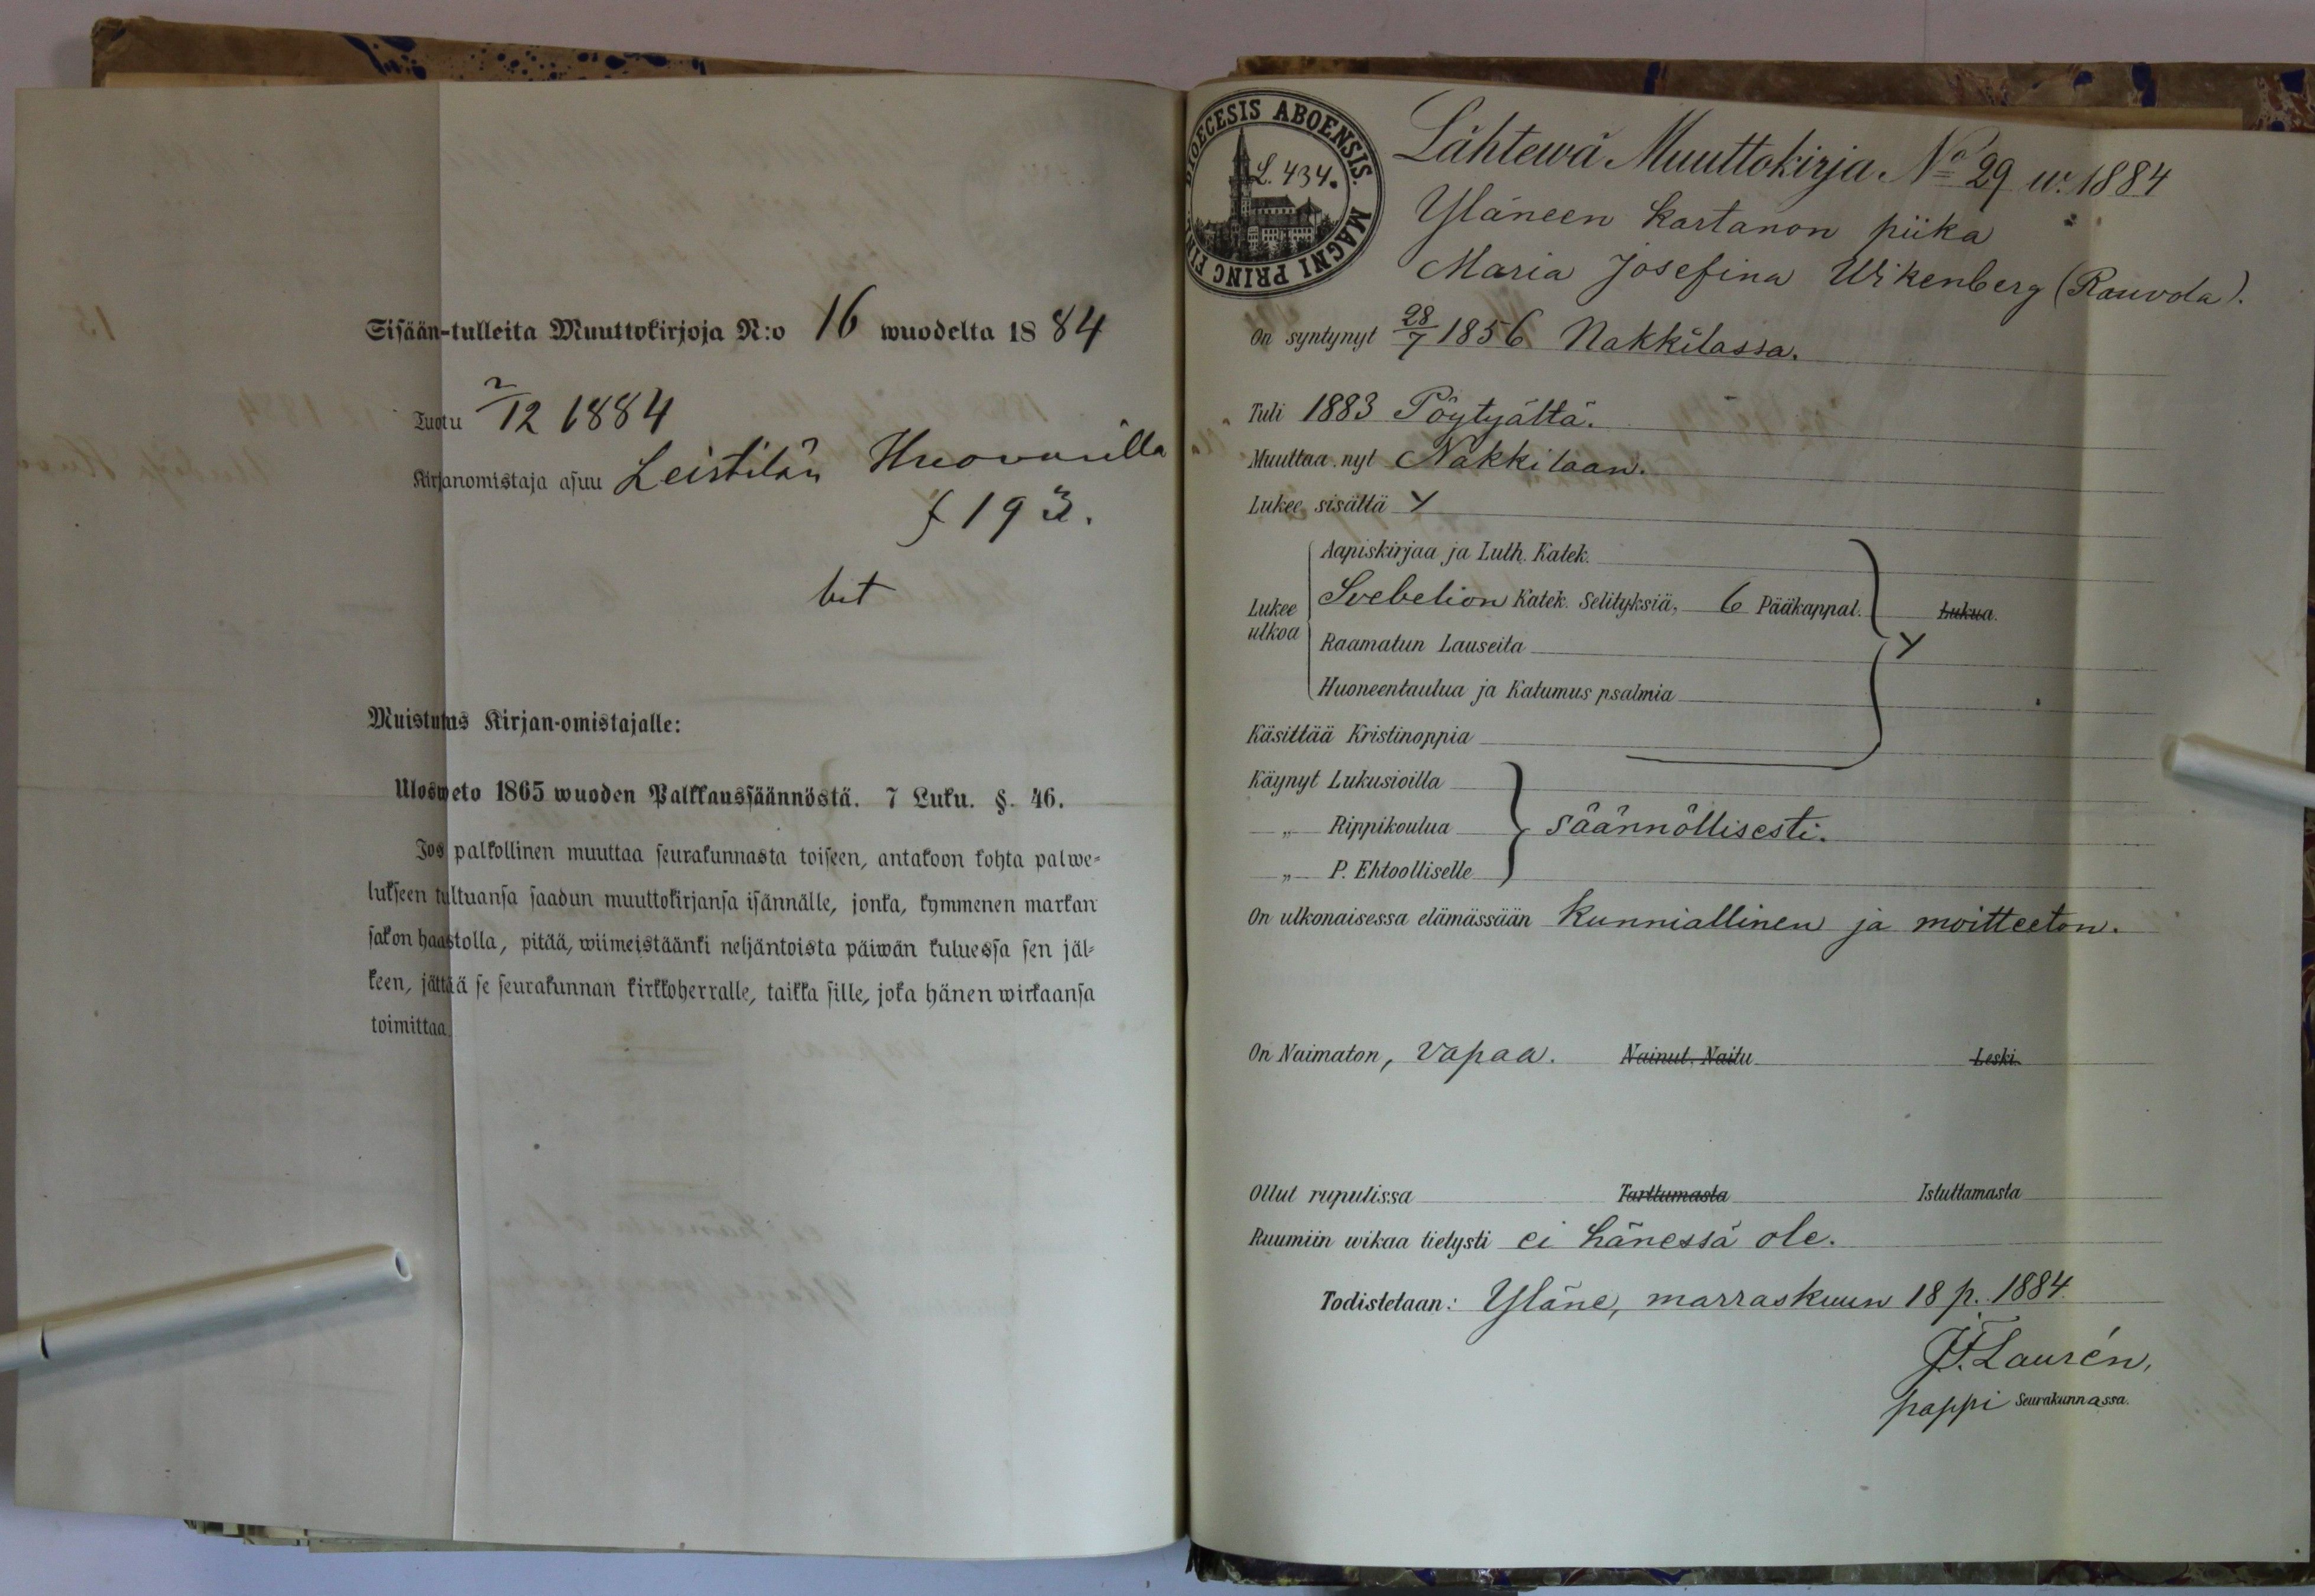 Sisään-tulleita Muuttokirjoja N:o 16 wuodelta 1884
Tuotu 2/12 1884
Kirjanomistaja asuu Leistilän Huovarilla
f 193.
Muistutus Kirjan-omistajalle:
Ulosweto 1865 wuoden Palkkaussäännöstä. 7 Luku. §. 46.
Jos palkollinen muuttaa seurakunnasta toiseen, antakoon kohta palwe-
lukseen tultuansa saadun muuttokirjansa isännälle, jonka, kymmenen markan
sakon haastolla, pitää, wiimeistäänki neljäntoista päiwän kuluessa sen jäl-
keen, jättää se seurakunnan kirkkoherralle, taikka sille, joka hänen wirkaansa
toimittaa.
DIOECESIS ABOENSIS. MAGNI PRINC FINL
L. 434.
Lähtewä Muuttokirja No 29 w. 1884
Yläneen kartanon piika
Maria Josefina Wikenberg (Rauvola).
On syntynyt 28/7 1856 Nakkilassa.
Tuli 1883 Pöytyältä.
Muuttaa nyt Nakkilaan.
Lukee sisältä Y
Lukee ulkoa
Aapiskirjaa ja Luth. Katek.
Svebelion Katek. Selityksiä, 6 Pääkappal. Lukua.
Raamatun Lauseita Y
Huoneentaulua ja Katumus psalmia
Käsittää Kristinoppia
Käynyt Lukusioilla
„ Rippikoulua säännöllisesti.
„ P. Ehtoolliselle
On ulkonaisessa elämässään kunniallinen ja moitteeton.
On Naimaton, vapaa. Nainut, Naitu Leski.
Ollut rupulissa Tarttumasta Istuttamasta
Ruumiin wikaa tietysti ei hänessä ole.
Todistetaan: Yläne, marraskuun 18 p. 1884.
J.F. Laurén,
pappi Seurakunnassa.